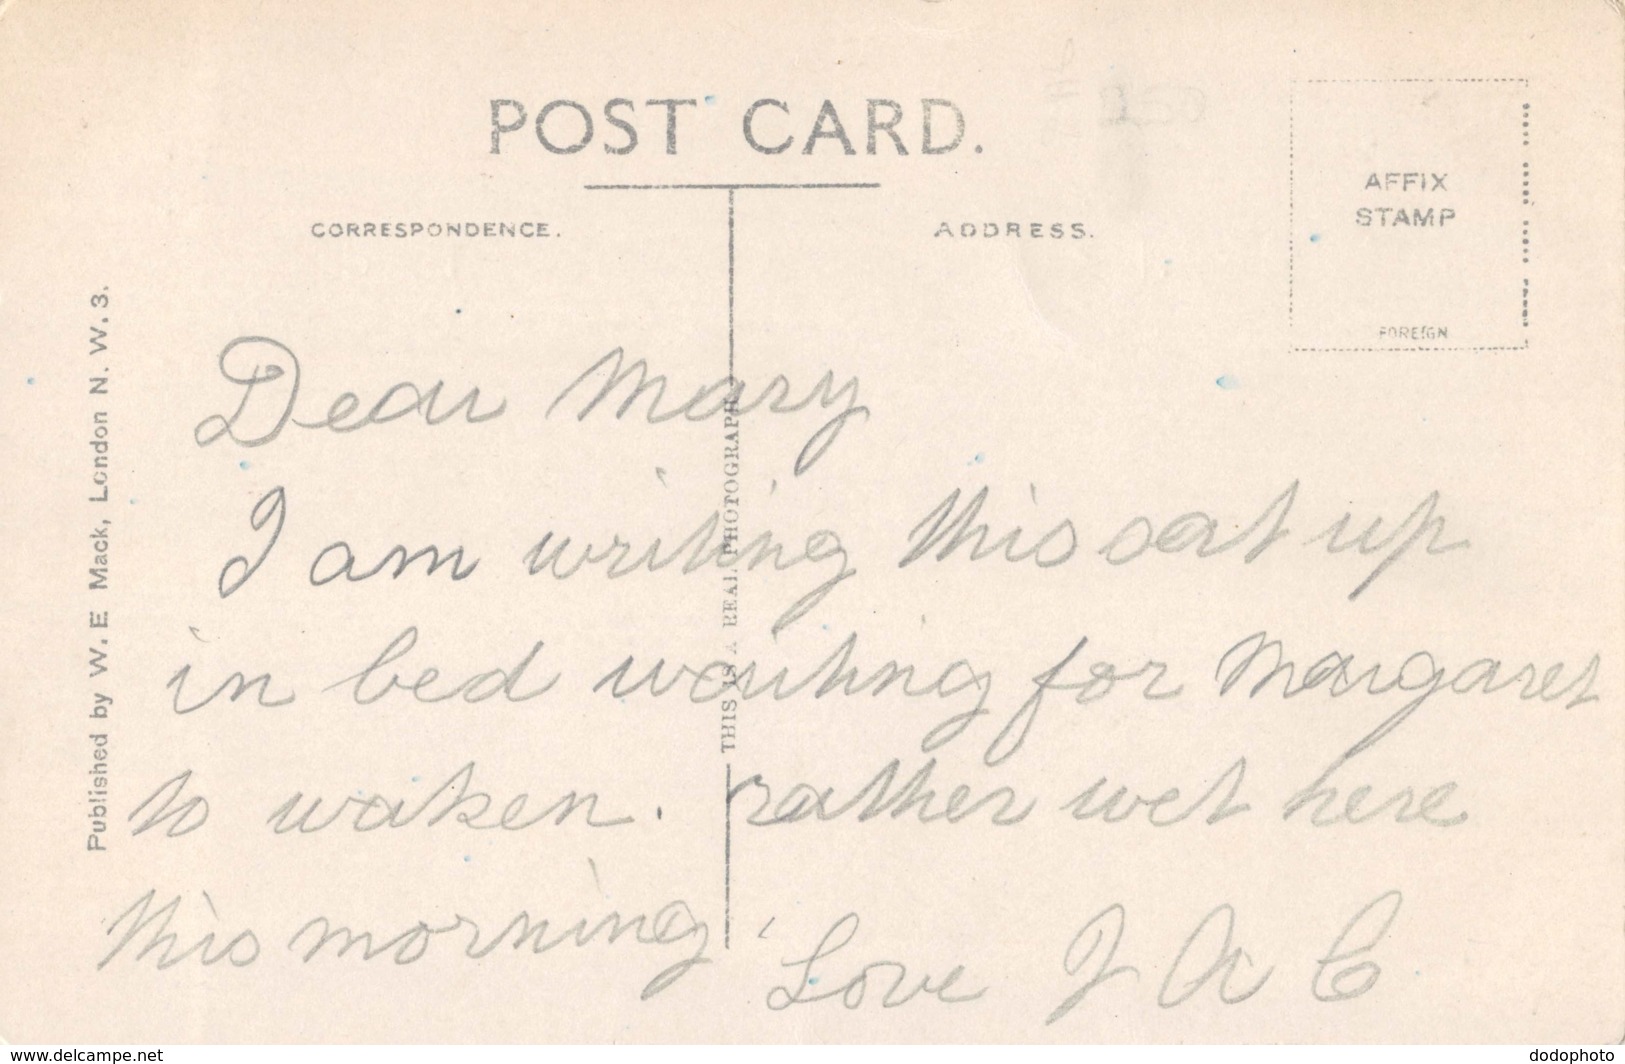 POST CARD.
CORRESPONDENCE.
ADDRESS.
AFFIX
STAMP
FOREIGN
Published by W. E Mack, London N. W. 3.
THIS IS A REAL PHOTOGRAPH
Dear Mary
I am writing this sat up
in bed waiting for Margaret
to waken. rather wet here
this morning
Love J A C
www.delcampe.net
dodophoto